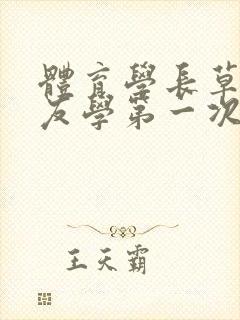 體育學長草
友學第一次
王天霸